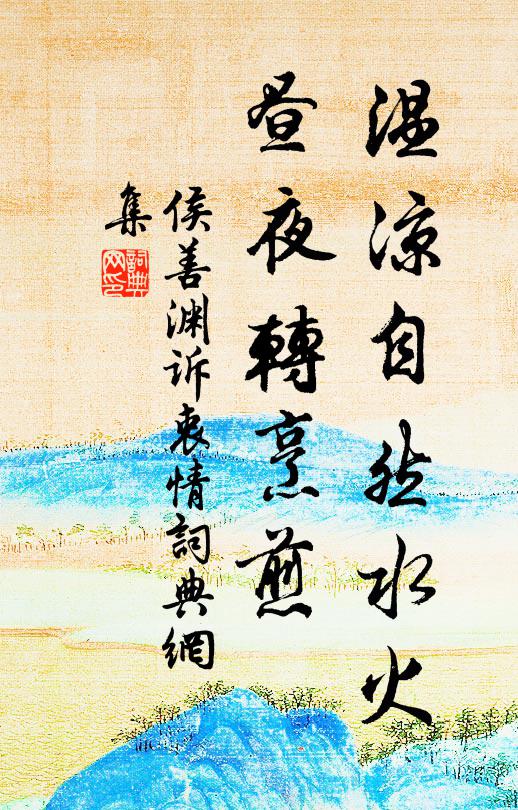 温凉自然水火
昼夜轉烹煎
侯善渊诉衷情詞典網
集
詞典网印